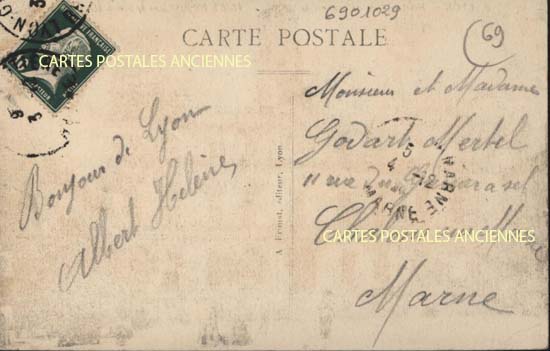 6901029
69
CARTE POSTALE
CARTES POSTALES ANCIENNES
Bonjour de Lyon
Albert Helène
A. Fermat, éditeur, Lyon
Monsieur et Madame
Godart Mertel
11 rue du
MARNE
MARNE
CARTES POSTALES ANCIENNES
Marne